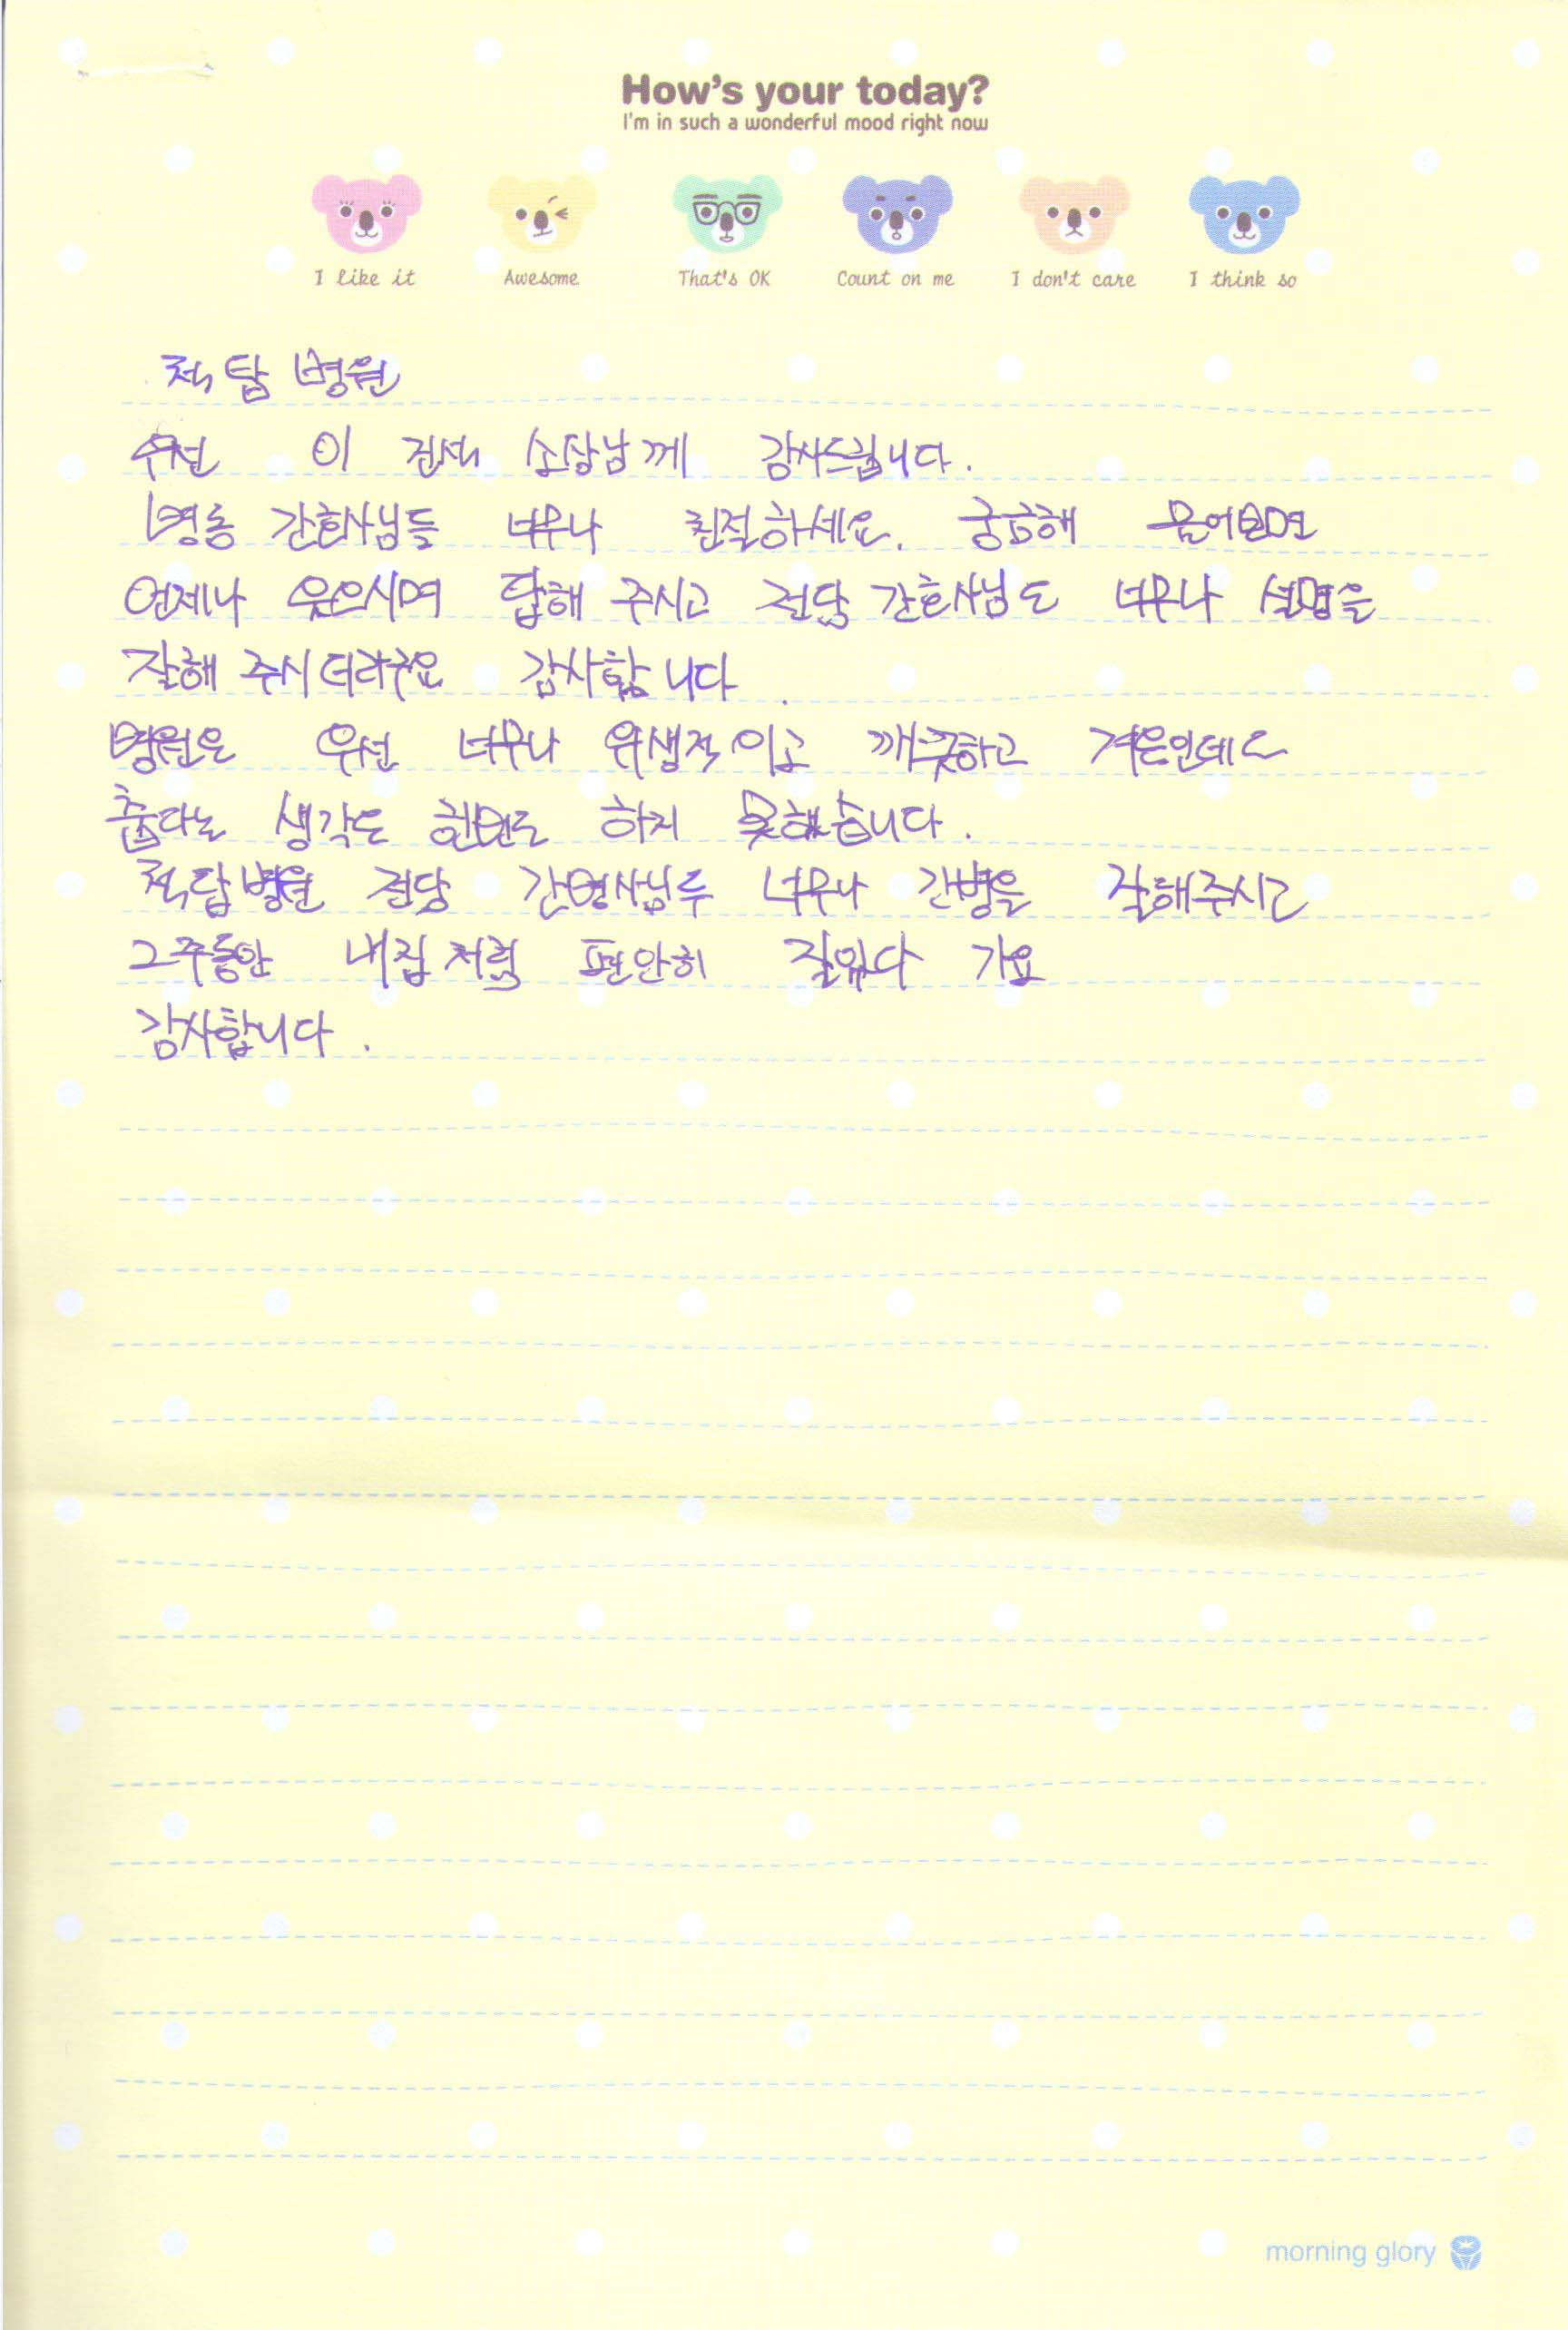 How's your today?
I'm in such a wonderful mood right now
I like it Awesome That's OK Count on me I don't care I think so
척탑 병원
우선 이 진석 소장님께 감사드립니다.
병동 간호사님들 너무나 친절하세요. 궁금해 물어보면
언제나 웃으시며 답해 주시고 전담 간호사님도 너무나 설명을
잘해 주시더라구요 감사합니다.
병원은 우선 너무나 위생적이고 깨끗하고 겨울인데도
춥다는 생각도 한번도 하지 못했습니다.
척탑병원 전담 간병사님두 너무나 간병을 잘해주시고
그주동안 내집처럼 편안히 잘있다 가요
감사합니다.
morning glory